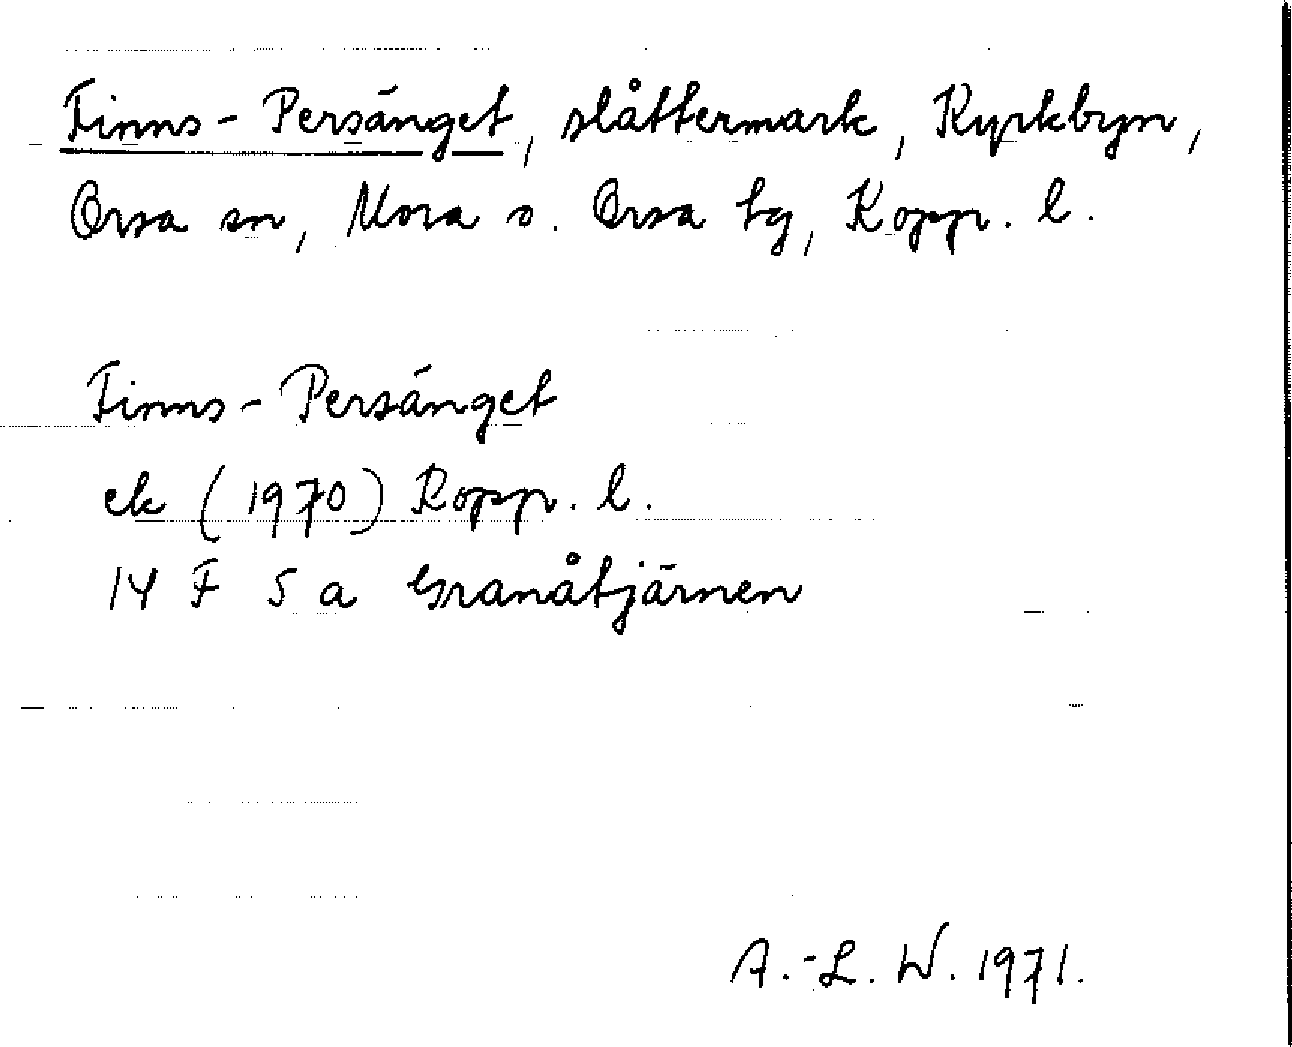 Finns-Persänget, slåttermark, Kyrkbyn,
Orsa sn, Mora o. Orsa tg, Kopp. l.
Finns-Persänget
ek (1970) Kopp. l.
14 F 5 a Granåtjärnen
A.-L. W. 1971.